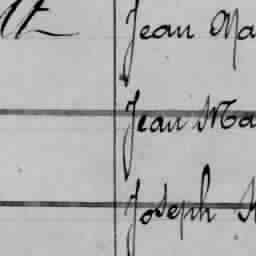 Jean Ma
Jean Ma
Joseph